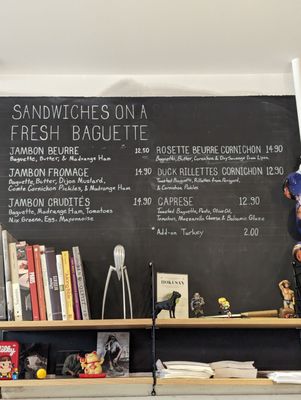 SANDWICHES ON A
FRESH BAGUETTE
JAMBON BEURRE 12.50
Baguette, Butter, & Madrange Ham
JAMBON FROMAGE 14.90
Baguette, Butter, Dijon Mustard,
Comte Cornichon Pickles, & Madrange Ham
JAMBON CRUDITÉS 14.90
Baguette, Madrange Ham, Tomatoes
Mix Greens, Egg, Mayonnaise
ROSETTE BEURRE CORNICHON 14.90
Baguette, Butter, Cornichon & Dry Sausage from Lyon
DUCK RILLETTES CORNICHON 12.90
Toasted Baguette, Rillettes from Perigord,
& Cornichon Pickles
CAPRESE 12.90
Toasted Baguette, Pesto, Olive Oil,
Tomatoes, Mozzarella Cheese & Balsamic Glaze
* Add-on Turkey 2.00
HOKUSAI